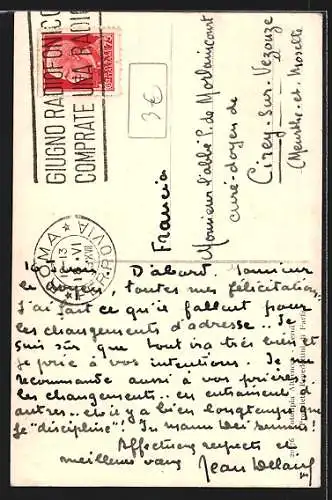 GIUGNO RADIOFONICO
COMPRATE UNA RADIO
3€
ROMA FERROVIA
13
VI
XVIII
Francia
Monsieur l'abbé P. de Morlaincourt
curé-doyen de
Cirey-sur-Vezouze
(Meurthe-et-Moselle
D'abord, Monsieur
le Doyen, toutes mes félicitations
J'ai fait ce qu'il fallait pour
les changements d'adresse.. Je
suis sûr que tout ira très bien et
je prie à vos intentions. Je me
recommande aussi à vos prières.
les changements.. en entrainent
autres.. et il y a bien longtemps que
je "discipline"! In manu Dei sumus!
Affectueux respects et
meilleurs vœux
Jean